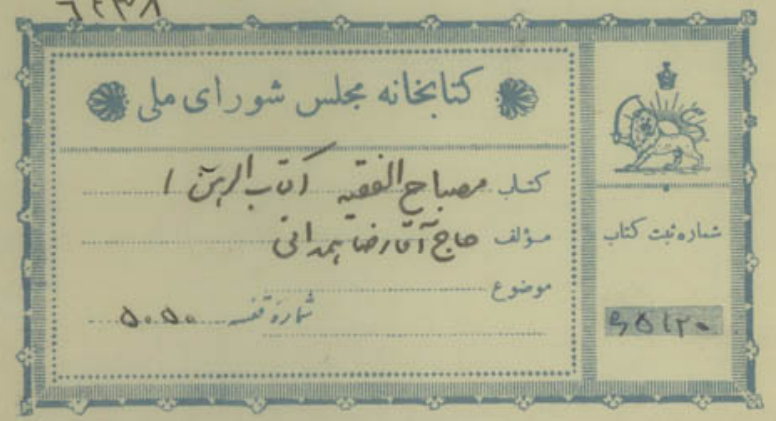 ۶۲۳۸
کتابخانه مجلس شورای ملی
کتاب مصباح الفقیه (کتاب الرهن)
مؤلف حاج آقا رضا همدانی
موضوع
شماره قفسه ۵۰۵۰
شماره ثبت کتاب